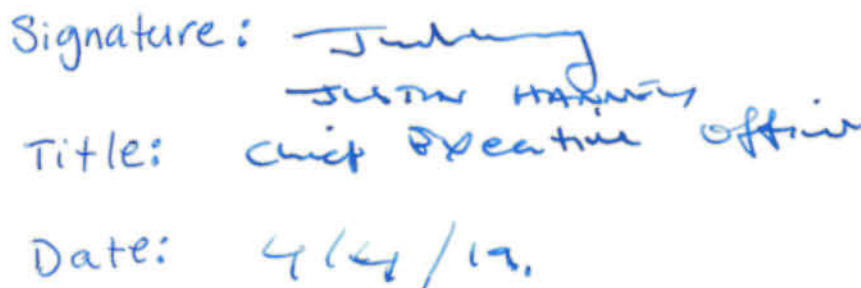 Signature:
JUSTIN HANNEY
Title: Chief Executive Officer
Date: 4/4/19.